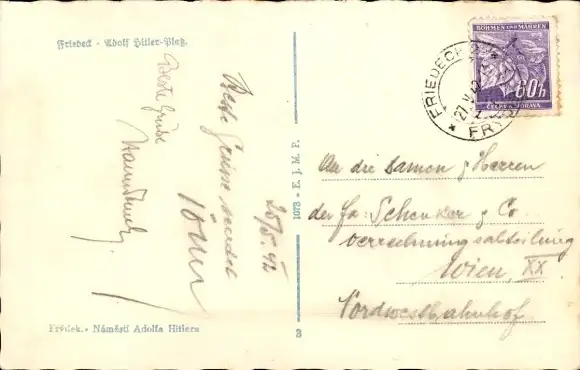 Friedeck - Adolf Hitler-Platz.
Beste Grüße
Beste Grüsse
25/5.42
1073 - E. J. M. P.
BÖHMEN UND MÄHREN
60h
ČECHY A MORAVA
FRIEDECK
27.V.42
FRÝ
An die Damen & Herren
der Fa: Schenker & Co.
Verrechnungsabteilung
Wien, XX.
Nordwestbahnhof
Frýdek. - Náměstí Adolfa Hitlera
3